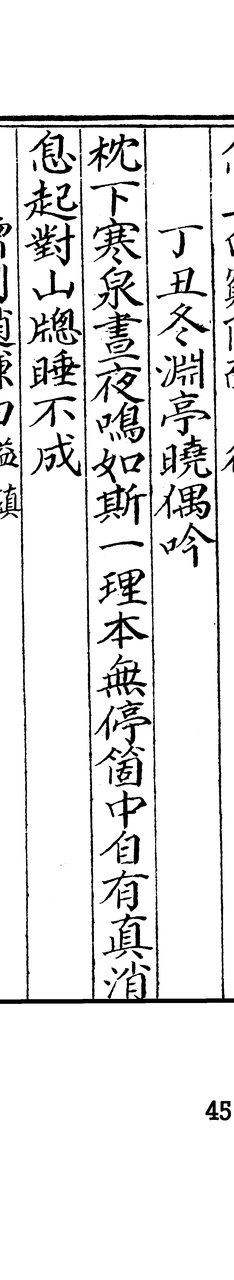 丁丑冬淵亭曉偶吟
枕下寒泉晝夜鳴如斯一理本無停箇中自有真消
息起對山牕睡不成
45